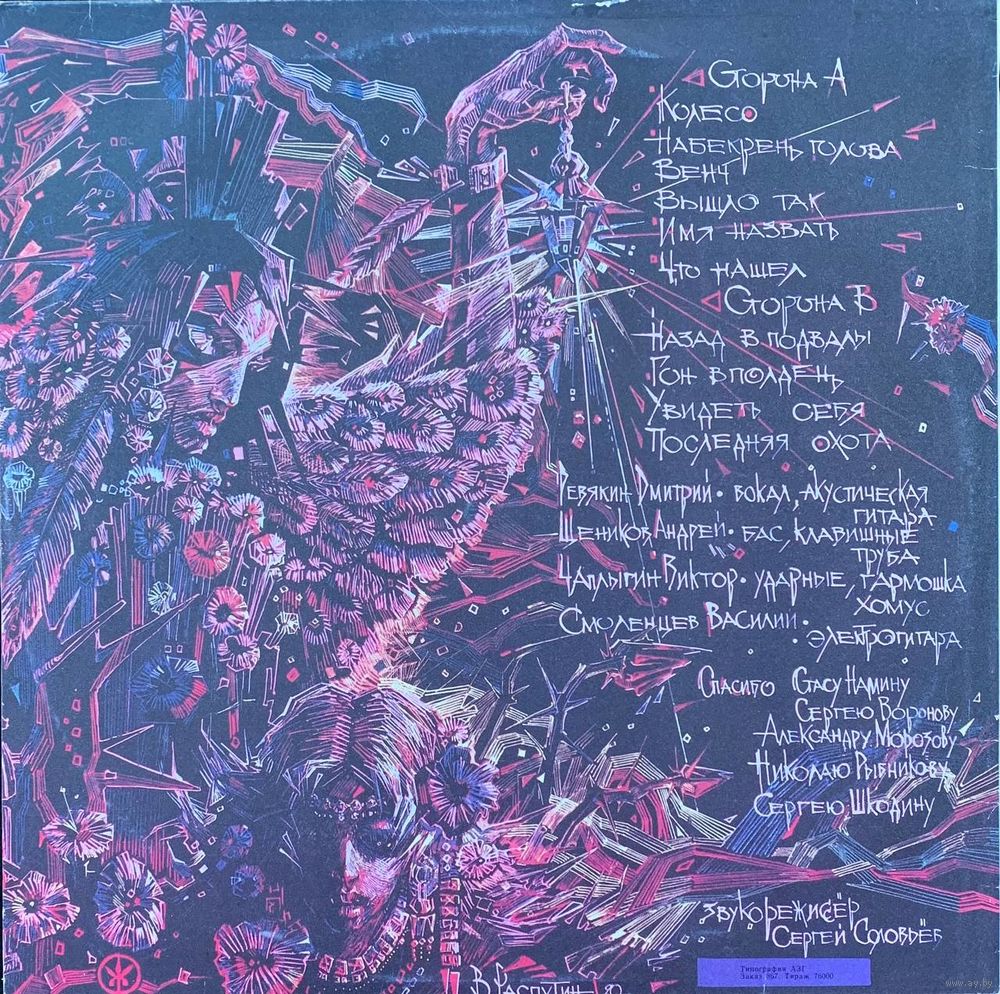 Сторона А
Колесо
Набекрень голова
Венч
Вышло так
Имя назвать
Что нашел
Сторона В
Назад в подвалы
Гон в полдень
Увидеть себя
Последняя охота
Ревякин Дмитрий • вокал, акустическая
гитара
Щеников Андрей • бас, клавишные
труба
Чаплыгин Виктор • ударные, гармошка
хомус
Смоленцев Василий •
• электрогитара
Спасибо Стасу Намину
Сергею Воронову
Александру Морозову
Николаю Рыбникову
Сергею Шкодину
звукорежиссёр
Сергей Соловьёв
Типография АЗГ
Заказ 867. Тираж 76000
В. Распутин
www.ay.by